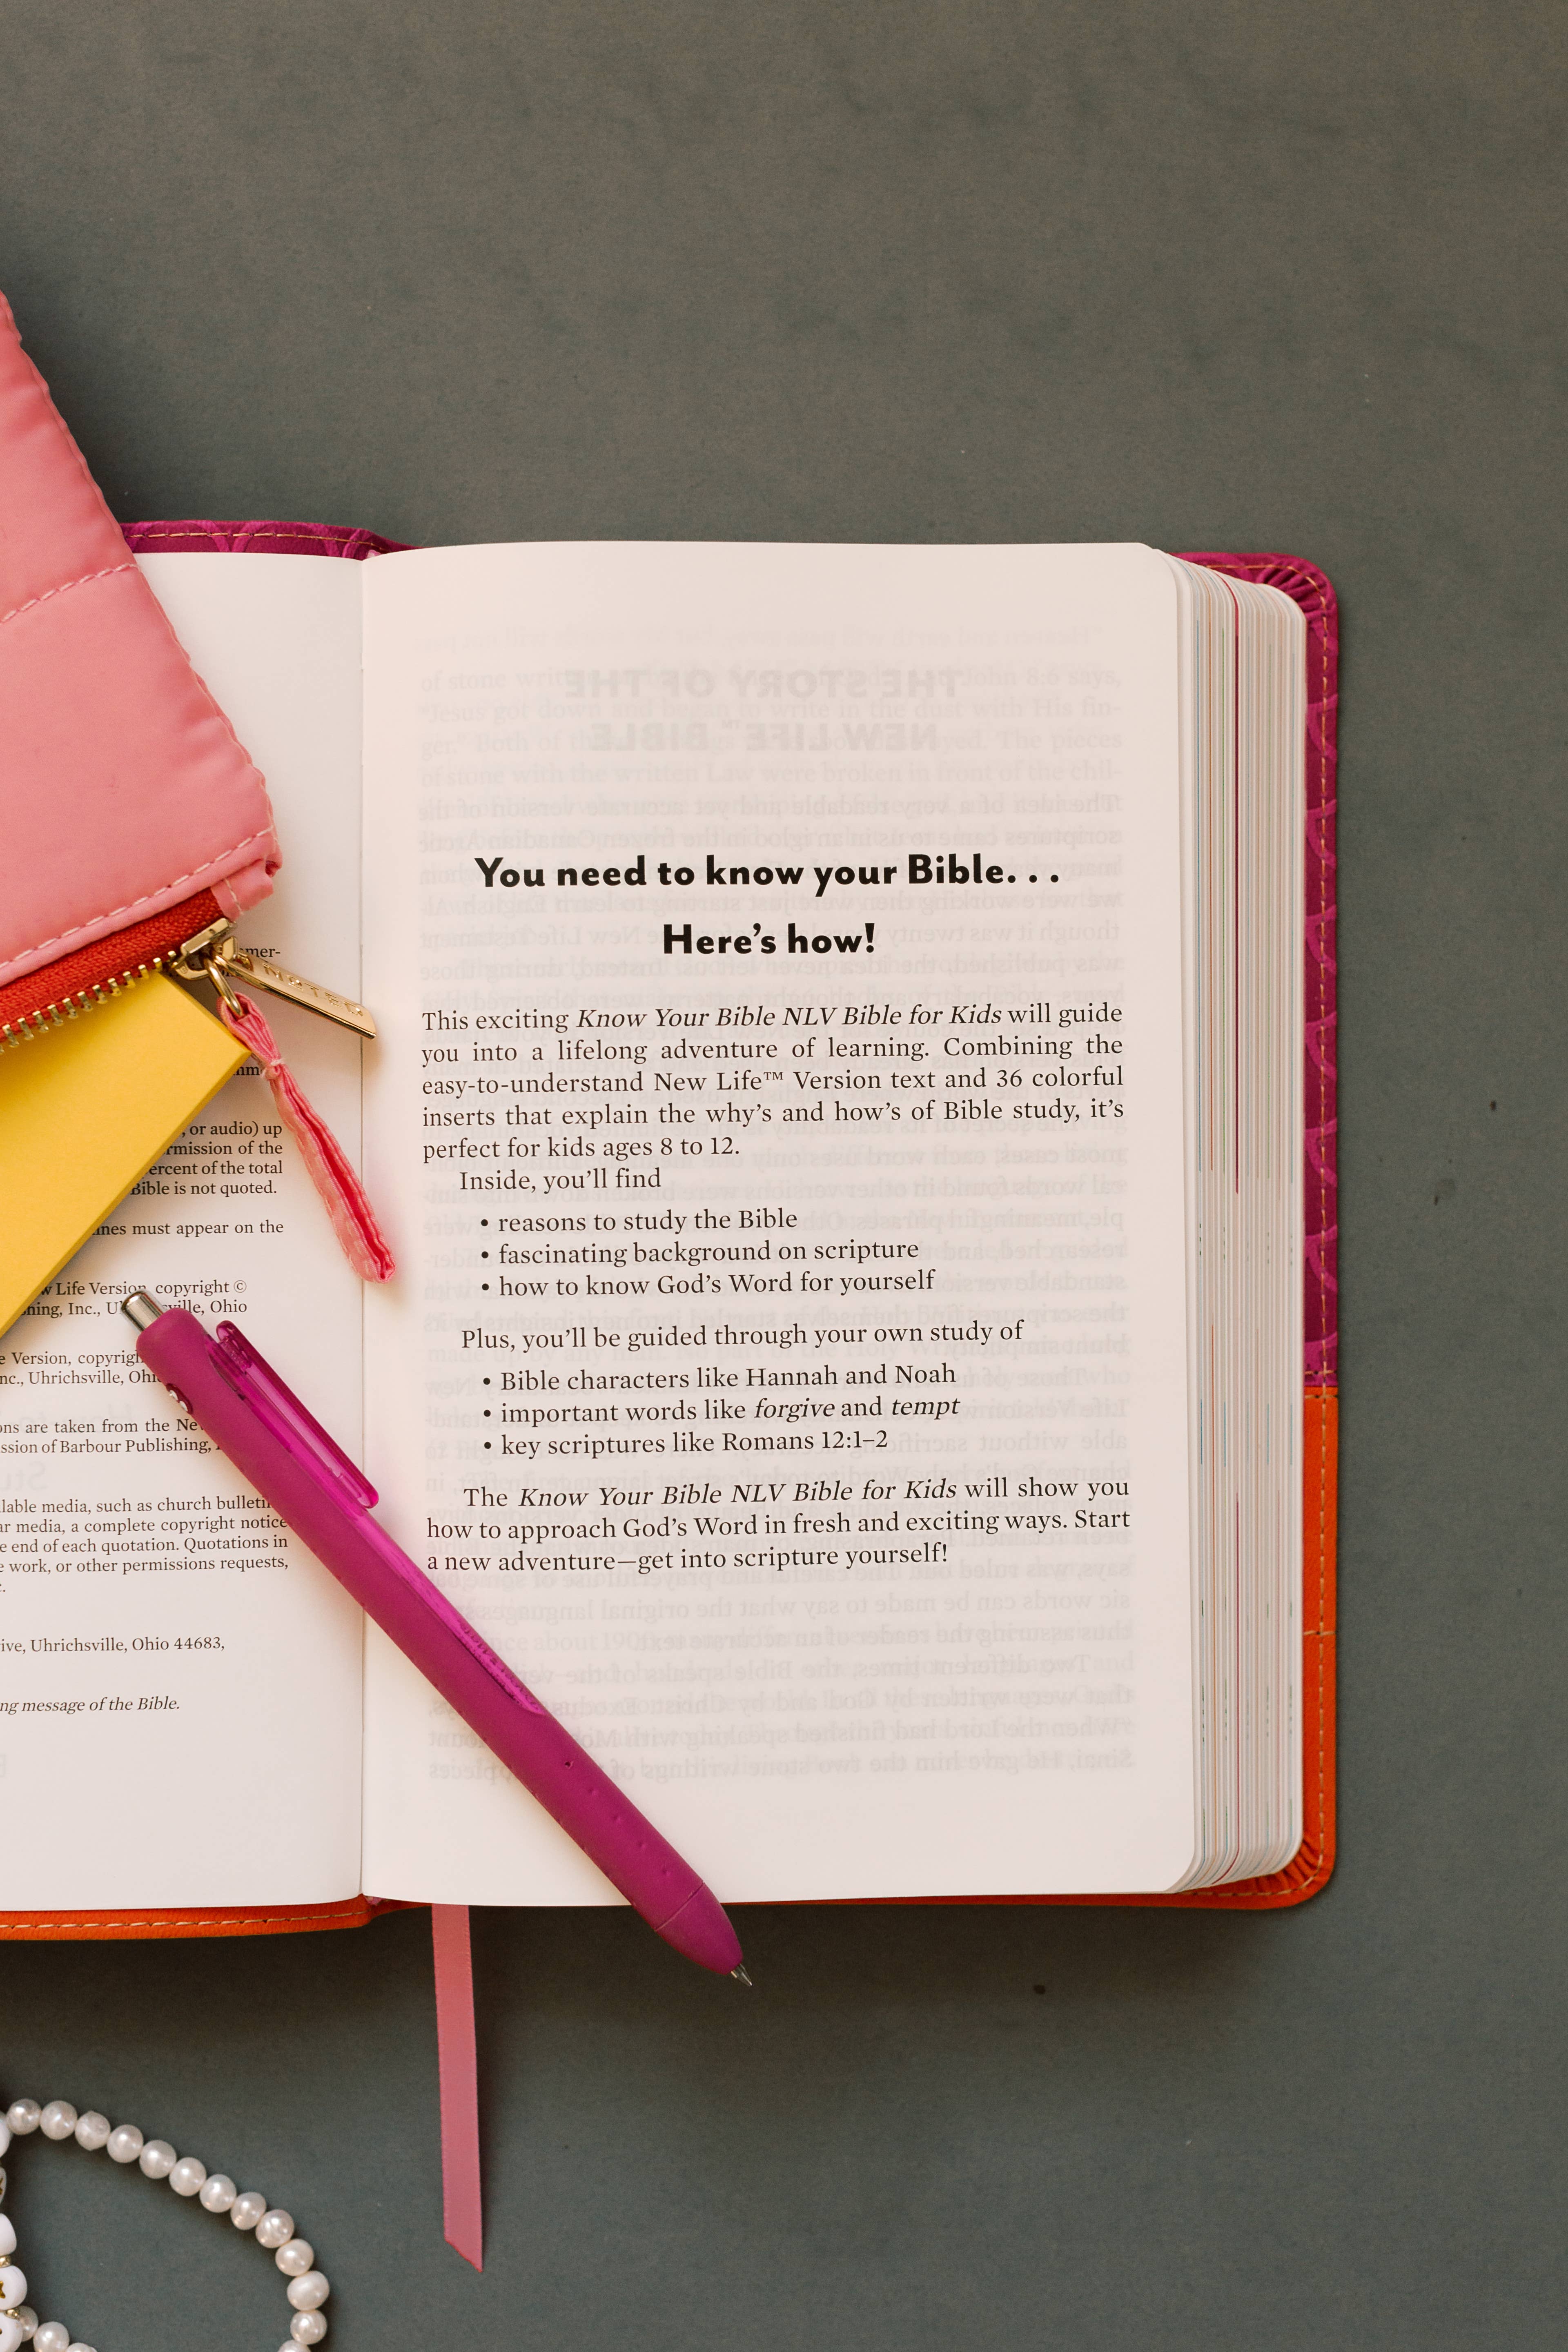 NOTED
mer-
, or audio) up
rmission of the
ercent of the total
Bible is not quoted.
nes must appear on the
w Life Version, copyright ©
hing, Inc., Uhrichsville, Ohio
e Version, copyrigh
nc., Uhrichsville, Ohi
ons are taken from the Ne
ssion of Barbour Publishing,
ilable media, such as church bulletin
ar media, a complete copyright notice
e end of each quotation. Quotations in
e work, or other permissions requests,
ive, Uhrichsville, Ohio 44683,
ng message of the Bible.
You need to know your Bible. . .
Here’s how!
This exciting Know Your Bible NLV Bible for Kids will guide
you into a lifelong adventure of learning. Combining the
easy-to-understand New Life™ Version text and 36 colorful
inserts that explain the why’s and how’s of Bible study, it’s
perfect for kids ages 8 to 12.
Inside, you’ll find
• reasons to study the Bible
• fascinating background on scripture
• how to know God’s Word for yourself
Plus, you’ll be guided through your own study of
• Bible characters like Hannah and Noah
• important words like forgive and tempt
• key scriptures like Romans 12:1–2
The Know Your Bible NLV Bible for Kids will show you
how to approach God’s Word in fresh and exciting ways. Start
a new adventure—get into scripture yourself!